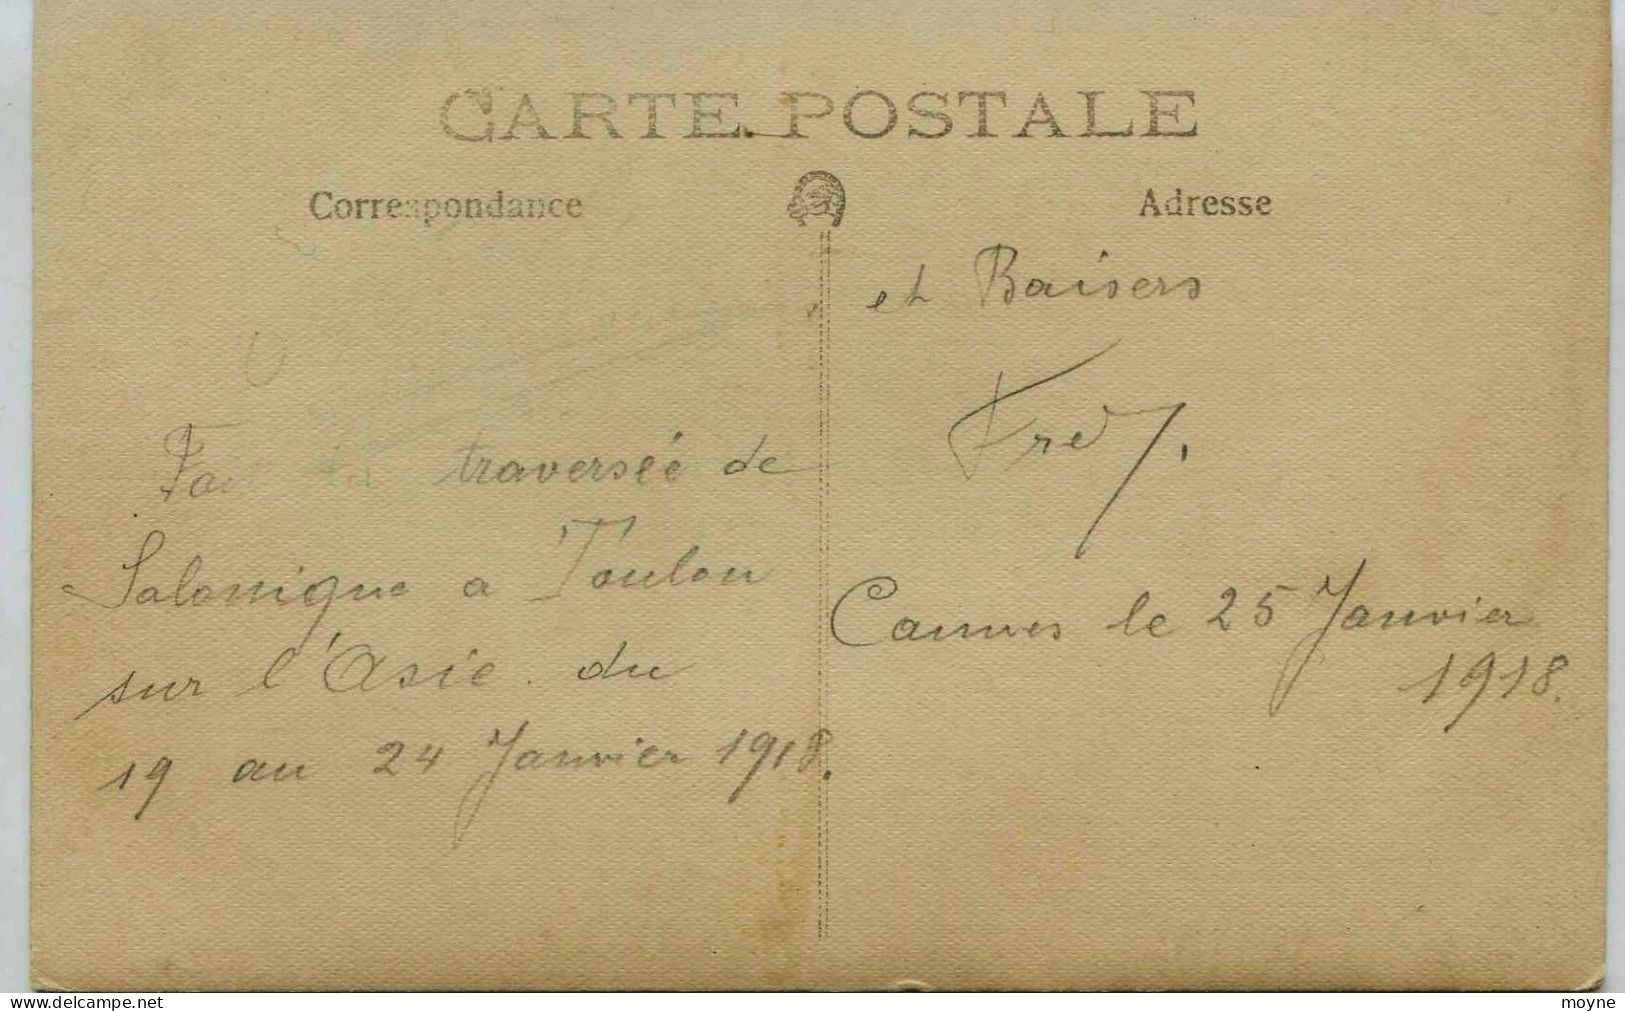 CARTE POSTALE
Correspondance
Adresse
traversée de
Salonique a Toulon
sur l'Asie. du
19 au 24 Janvier 1918.
et Baisers
Fred.
Cannes le 25 Janvier
1918.
https://www.delcampe.net
moyne